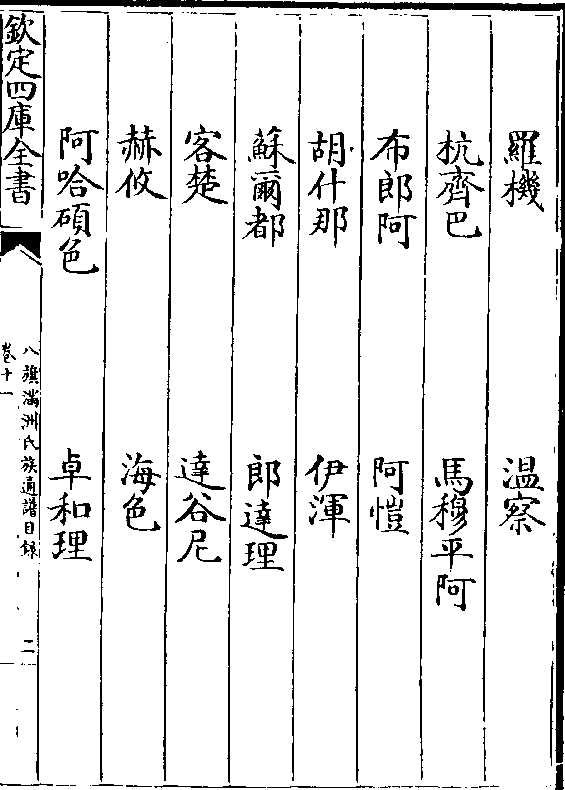 羅機 溫察
杭齊巴 馬穆平阿
布郎阿 阿愷
胡什那 伊渾
蘇爾都 郎達理
客楚 達谷尼
赫攸 海色
阿哈碩色 卓和理
欽定四庫全書
八旗滿洲氏族通譜目錄
卷十一
二